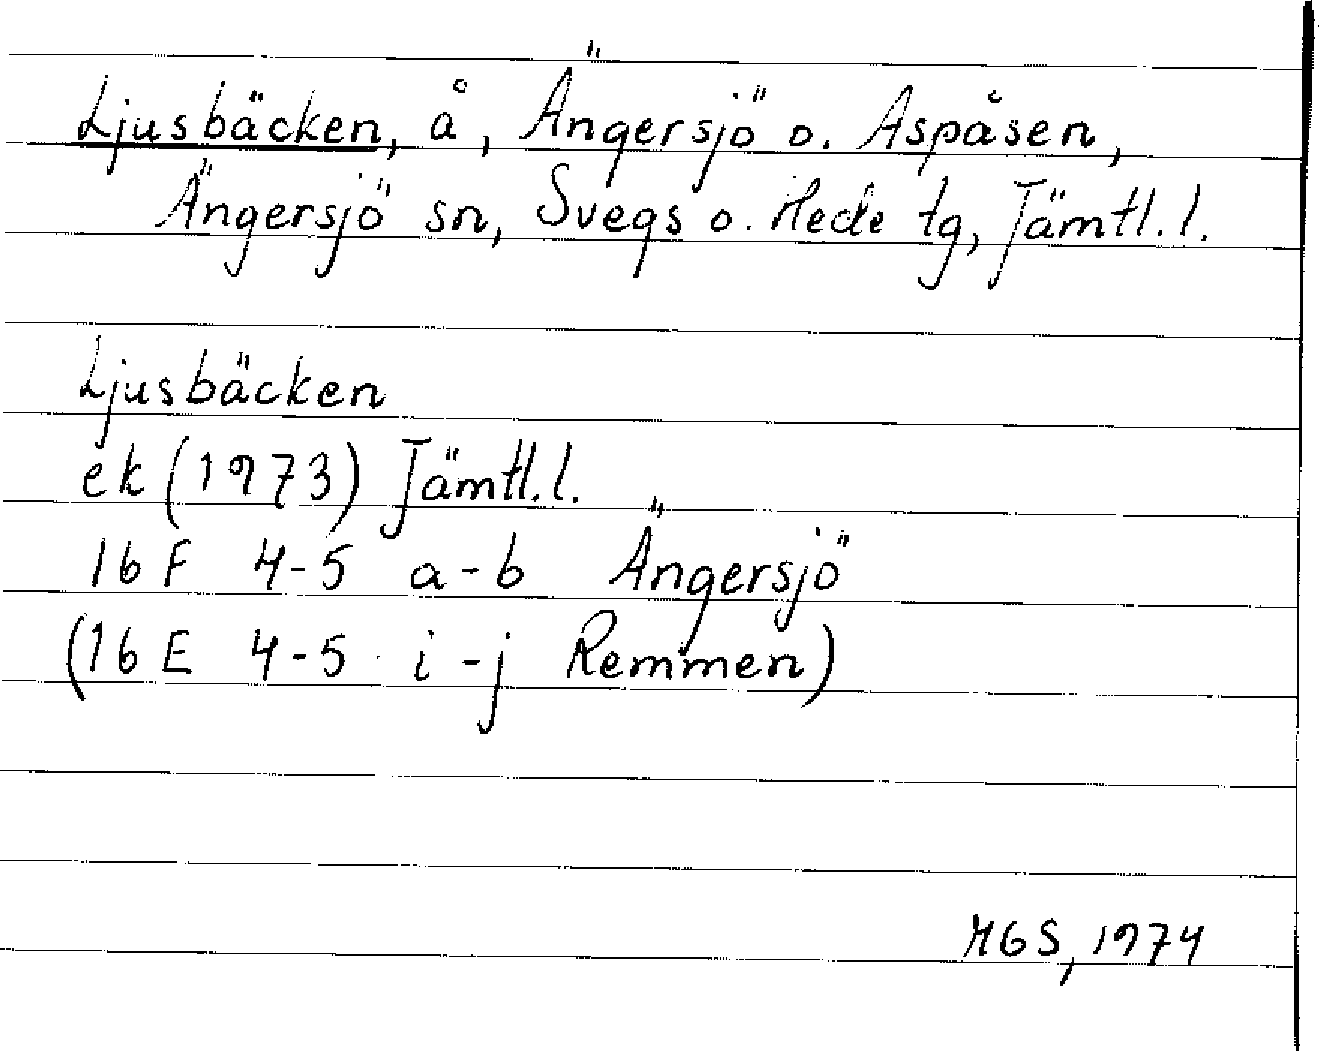 Ljusbäcken, å, Ängersjö o. Aspåsen,
Ängersjö sn, Svegs o. Hede tg, Jämtl.l.
Ljusbäcken
ek (1973) Jämtl.l.
16 F 4-5 a-b Ängersjö
(16 E 4-5 i-j Remmen)
MGS, 1974